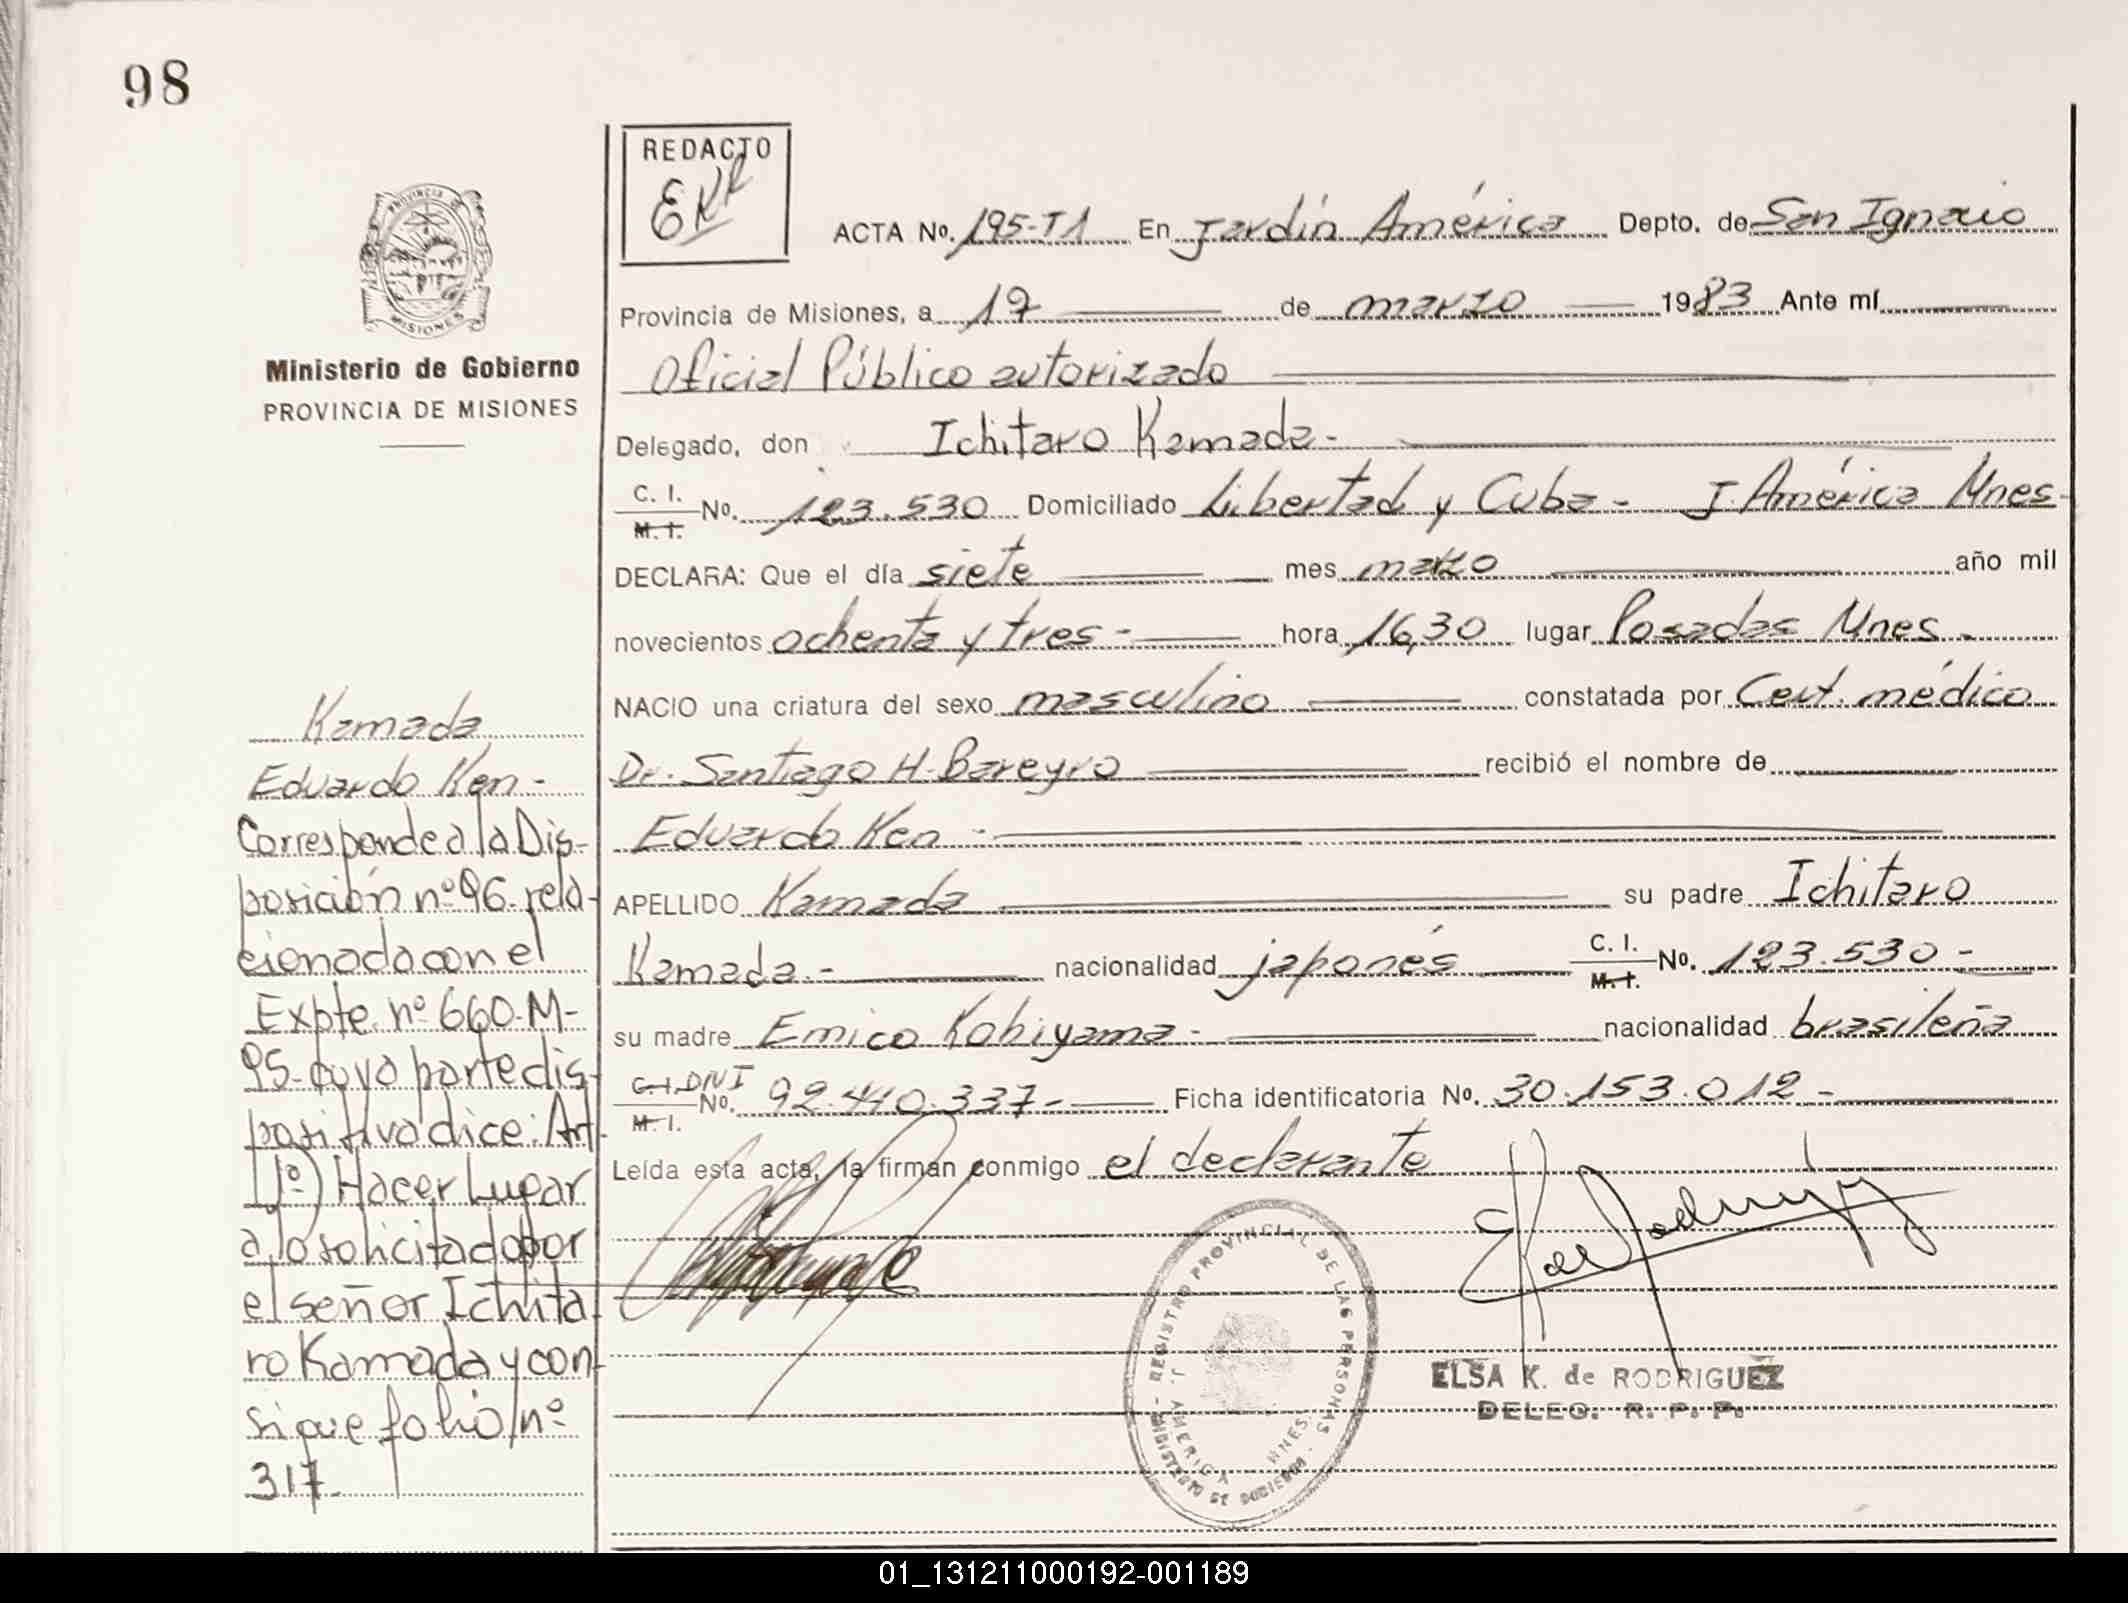 98
REDACTO
EKR
ACTA No. 195-T1 En Jardín América Depto. de San Ignacio
Provincia de Misiones, a 17 de marzo 1983 Ante mí
Oficial Público autorizado
Delegado, don Ichitaro Kamada-
C. I.
M. I. No. 123.530 Domiciliado Libertad y Cuba - J. América Mnes-
DECLARA: Que el día siete mes marzo año mil
novecientos ochenta y tres- hora 16,30 lugar Posadas Mnes.
NACIO una criatura del sexo masculino constatada por Cert. médico
Dr. Santiago H. Bareyro recibió el nombre de
Eduardo Ken -
APELLIDO Kamada su padre Ichitaro
Kamada.- nacionalidad japonés C. I.
M. I. No. 123.530-
su madre Emico Kohiyama- nacionalidad brasileña
C. I. DNI
M. I. No. 92.440.337- Ficha identificatoria No. 30.153.012-
Leída esta acta, la firman conmigo el declarante
REGISTRO PROVINCIAL DE LAS PERSONAS
MINISTERIO DE GOBIERNO
J. AMERICA MNES.
ELSA K. de RODRIGUEZ
DELEG. R. P. P.
PROVINCIA
MISIONES
Ministerio de Gobierno
PROVINCIA DE MISIONES
Kamada
Eduardo Ken-
Corresponde a la Dis-
posición nº 96. rela-
cionada con el
Expte. nº 660-M-
95- cuya parte dis-
positiva dice: Art
1º) Hacer Lugar
a lo solicitado por
el señor Ichita
ro Kamada y con
sigue folio nº
317.
01_131211000192-001189